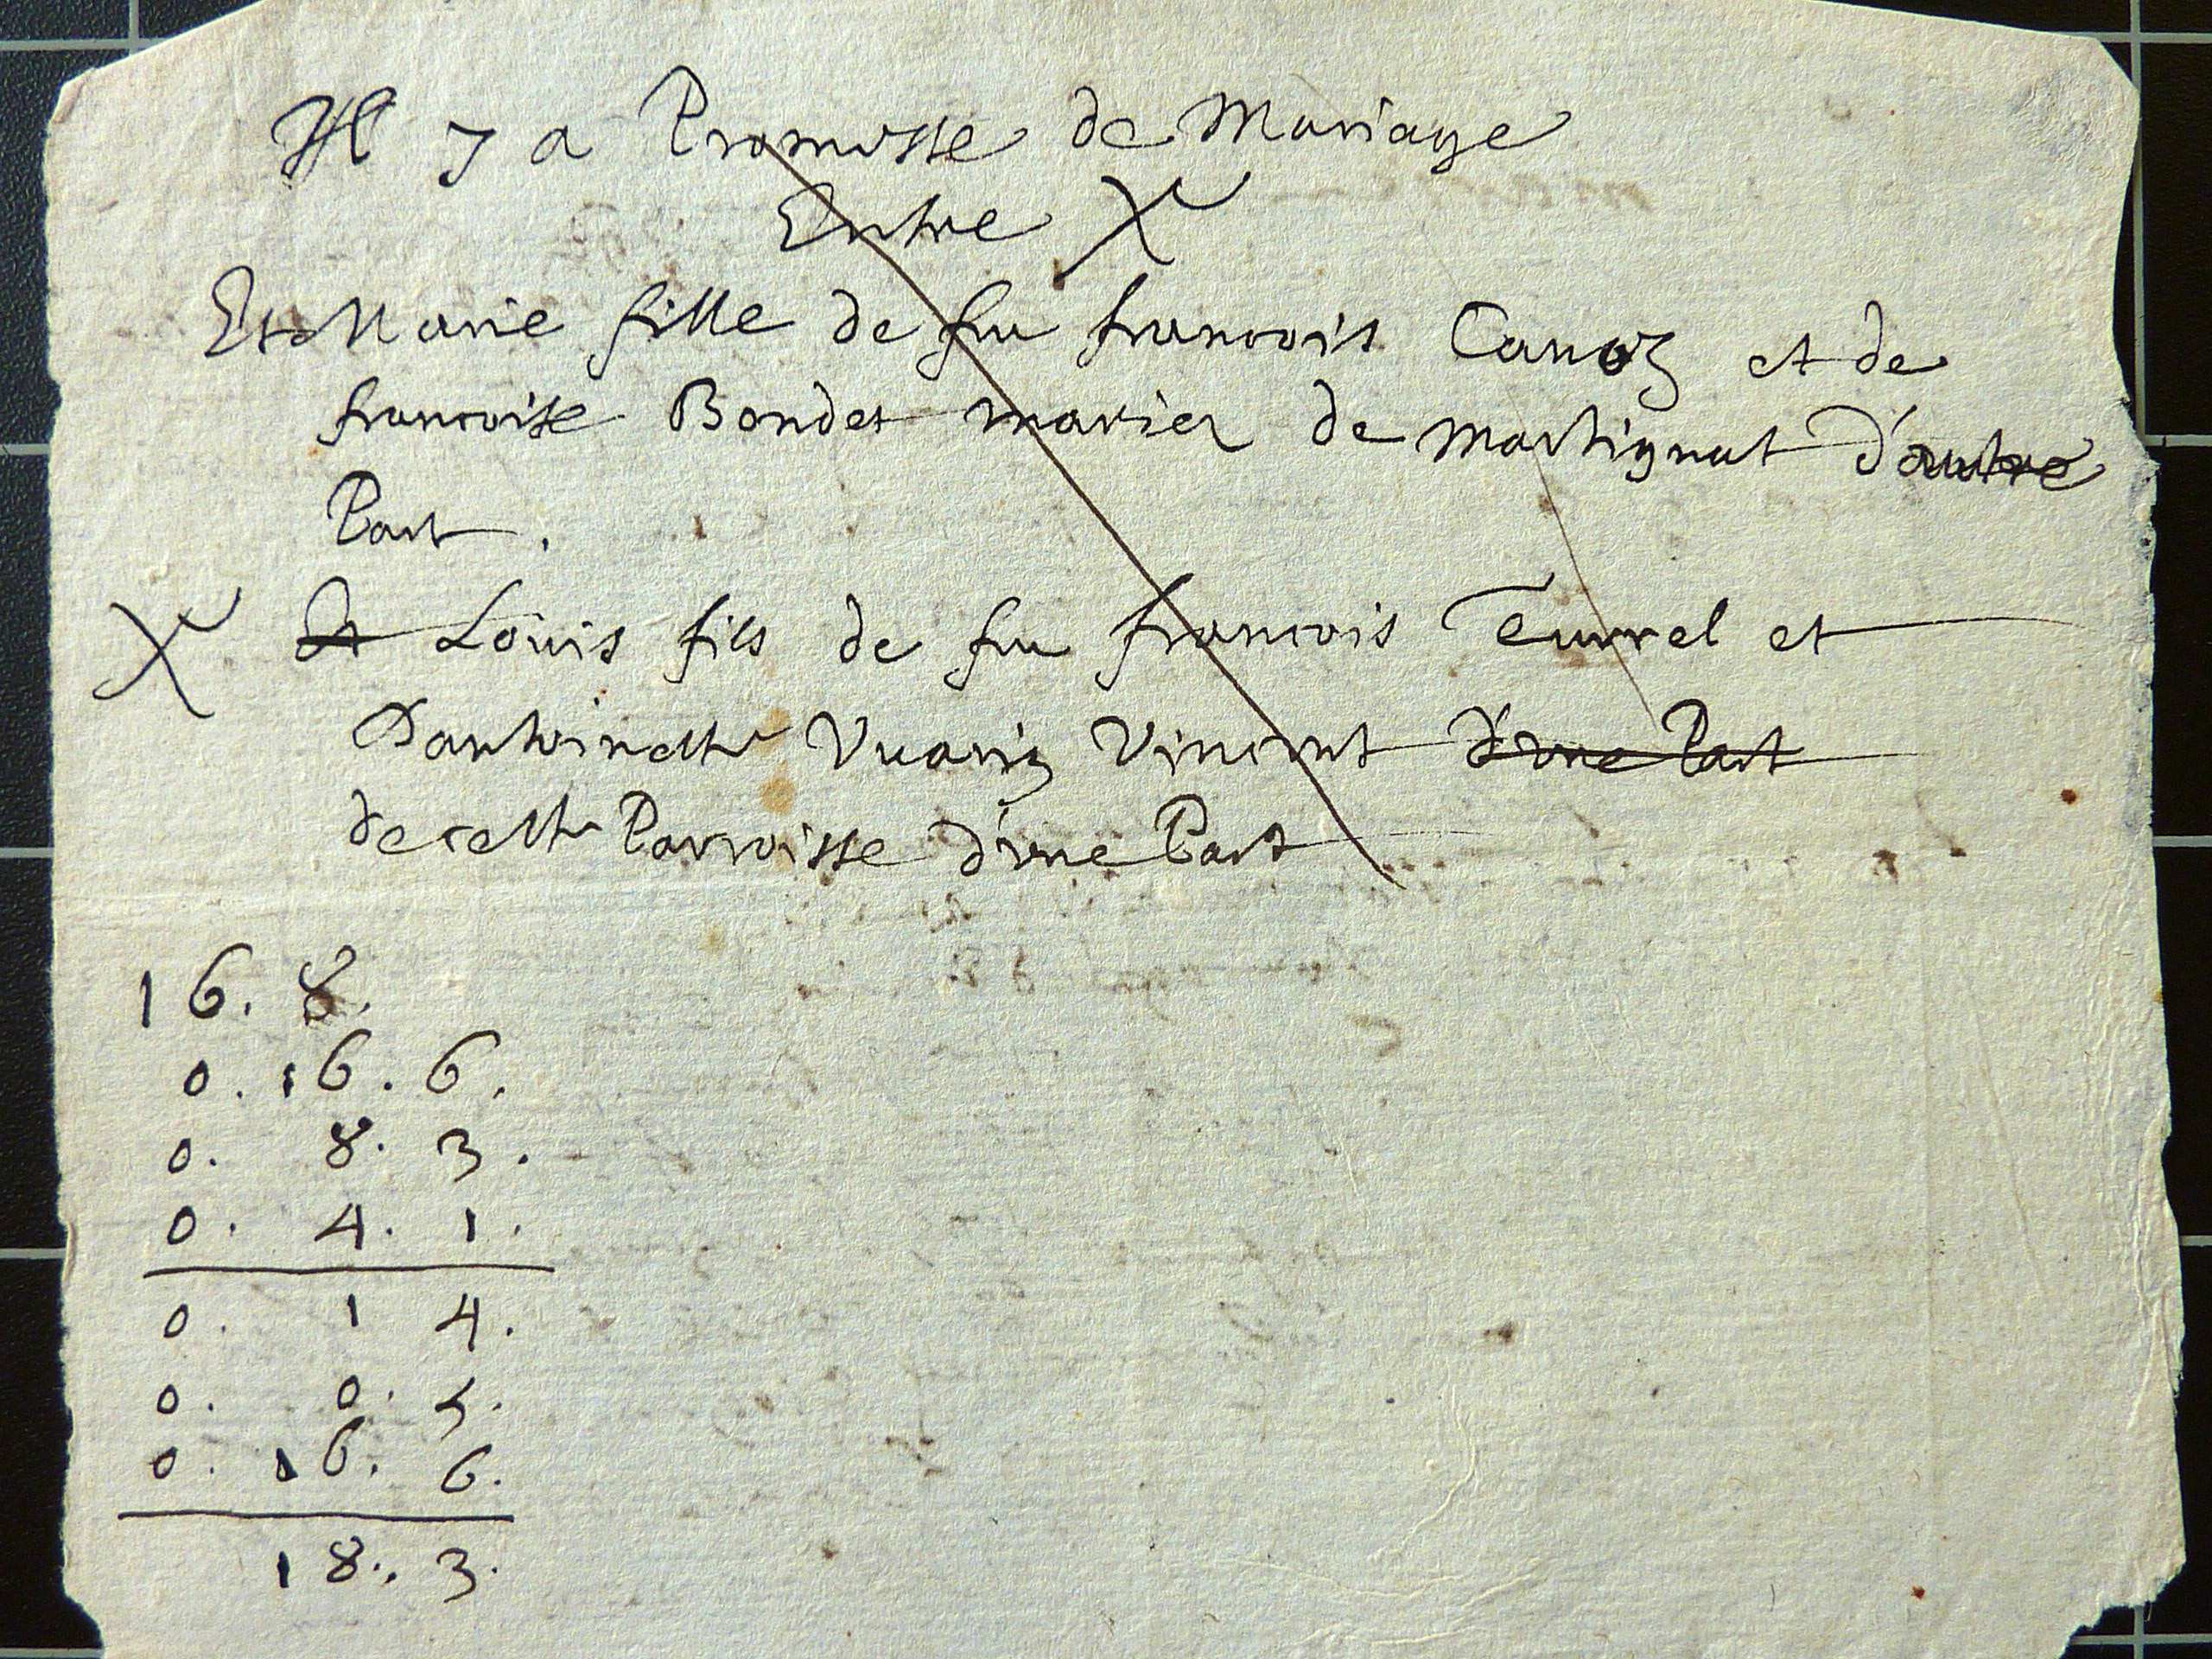 Il y a Promisse de Mariage
Entre X
Et Marie fille de feu francois Canoz et de
francoise Bondet mariez de Martignat d'autre
Part .
X Et Louis fils de feu francois Turrel et
D'anthoinette Vuariz Vincent d'une Part
de cette Parroisse d'une Part
16. 8.
0. 16. 6.
0. 8. 3.
0. 4. 1.
0. 1 4.
0. 0. 5.
0. 16. 6.
18. 3.